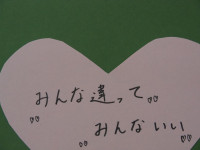 みんな違って。。
みんないい